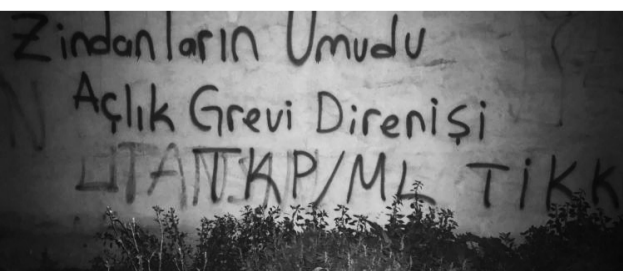 Zindanların Umudu
Açlık Grevi Direnişi
UTAN TKP/ML TİKK